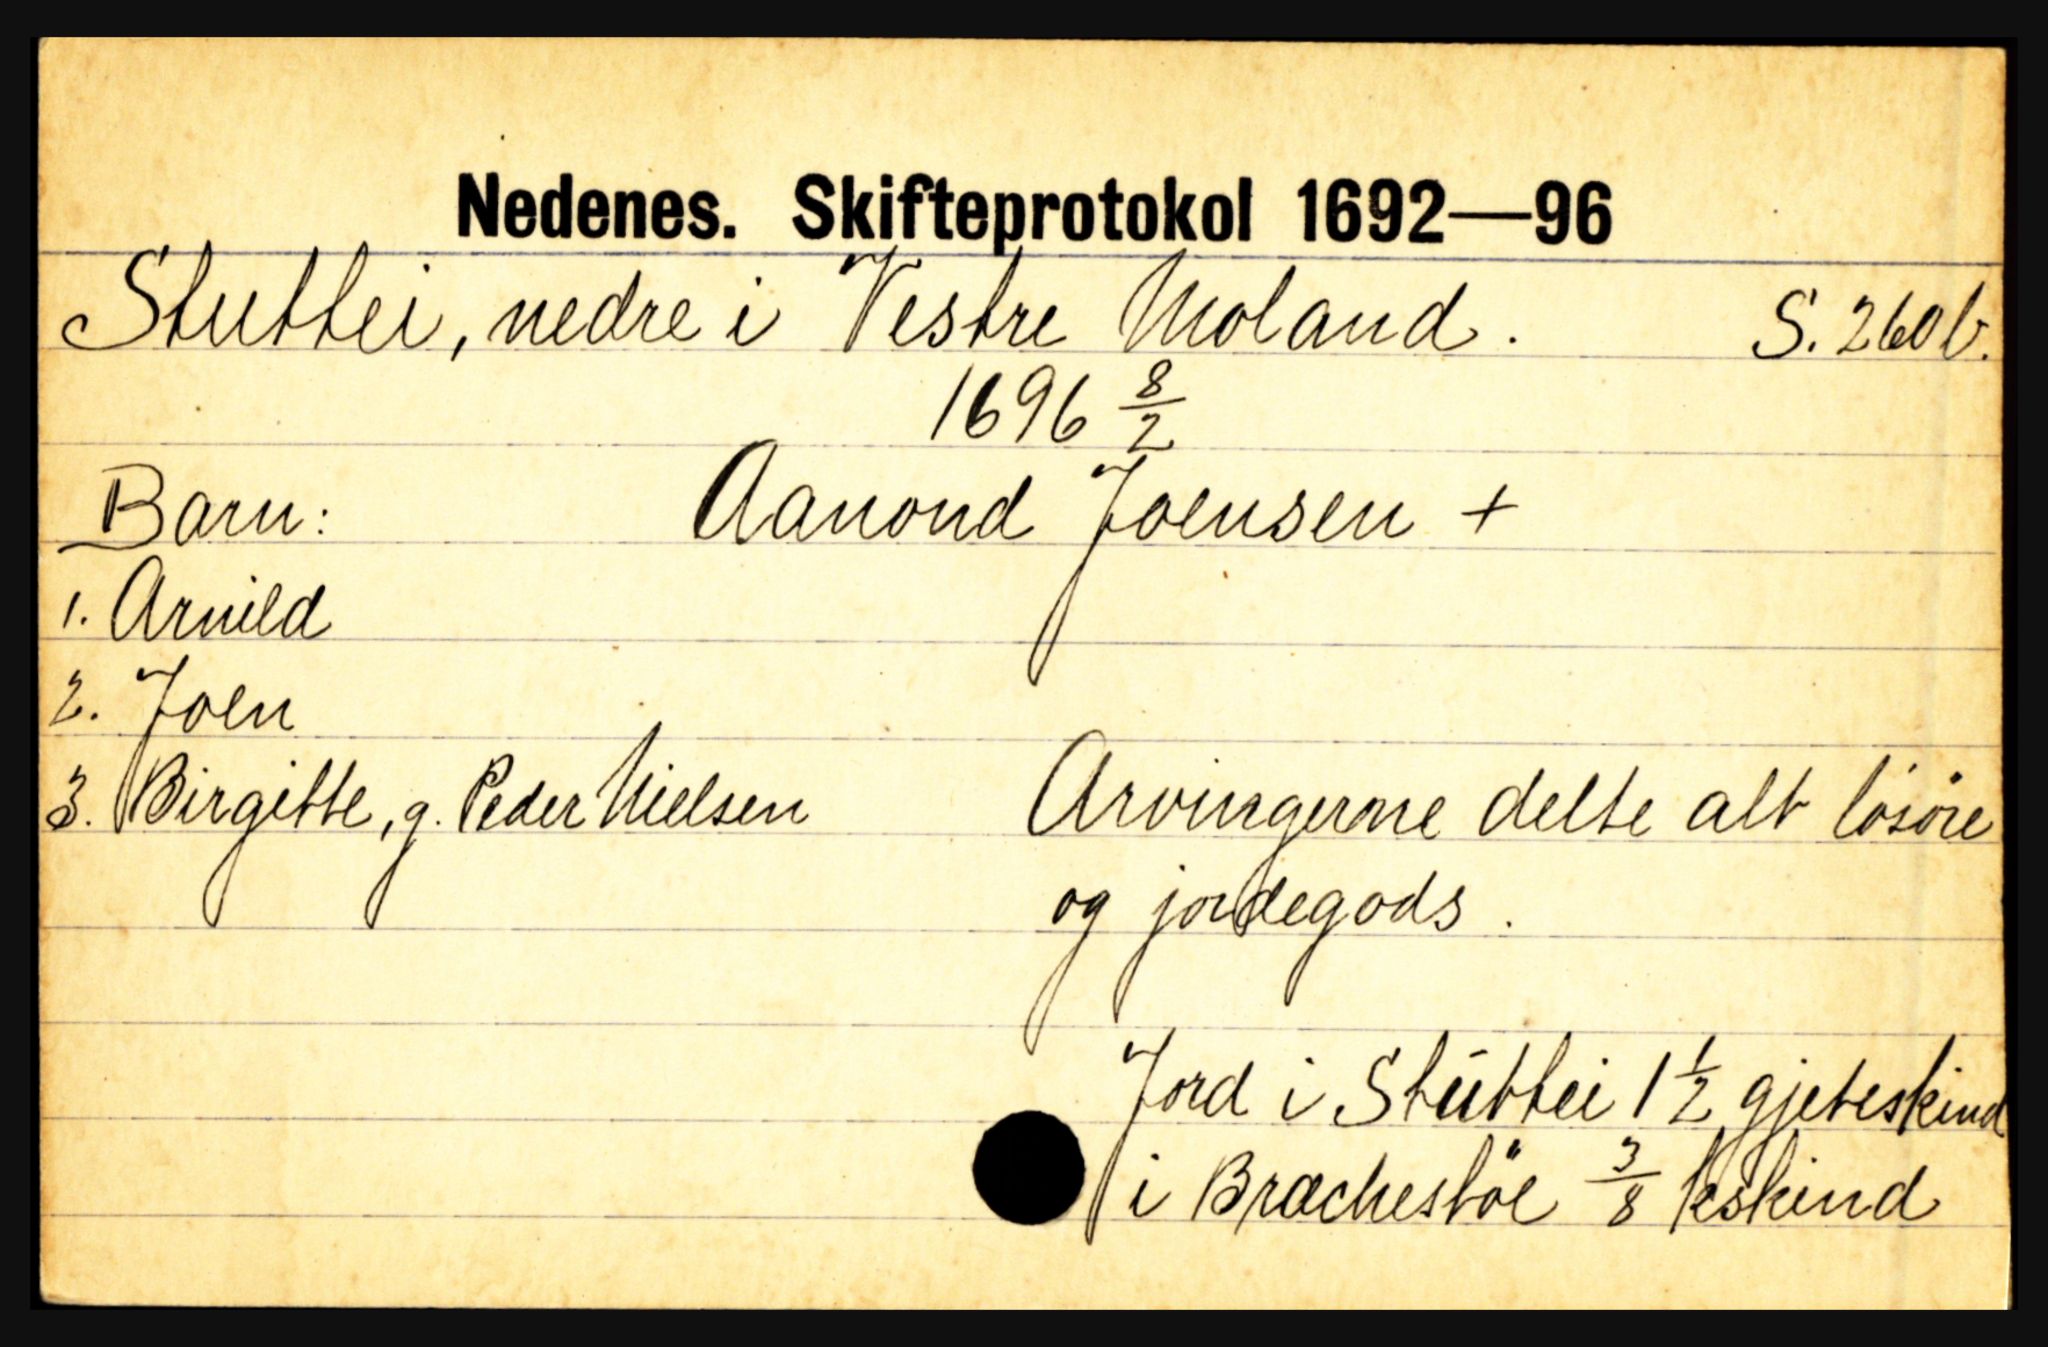 Nedenes. Skifteprotokol 1692—96
Stuttei, nedre i Vestre Moland. S. 260b.
1696 8/2
Barn: Aanond Joensen +
1. Arnild
2. Joen
3. Birgitte, g. Peder Nielsen Arvingerne delte alt løsøre
og jordegods.
Jord i Stúttei 1 1/2 gjeteskind
i Bræchestöe 3/8 kskind